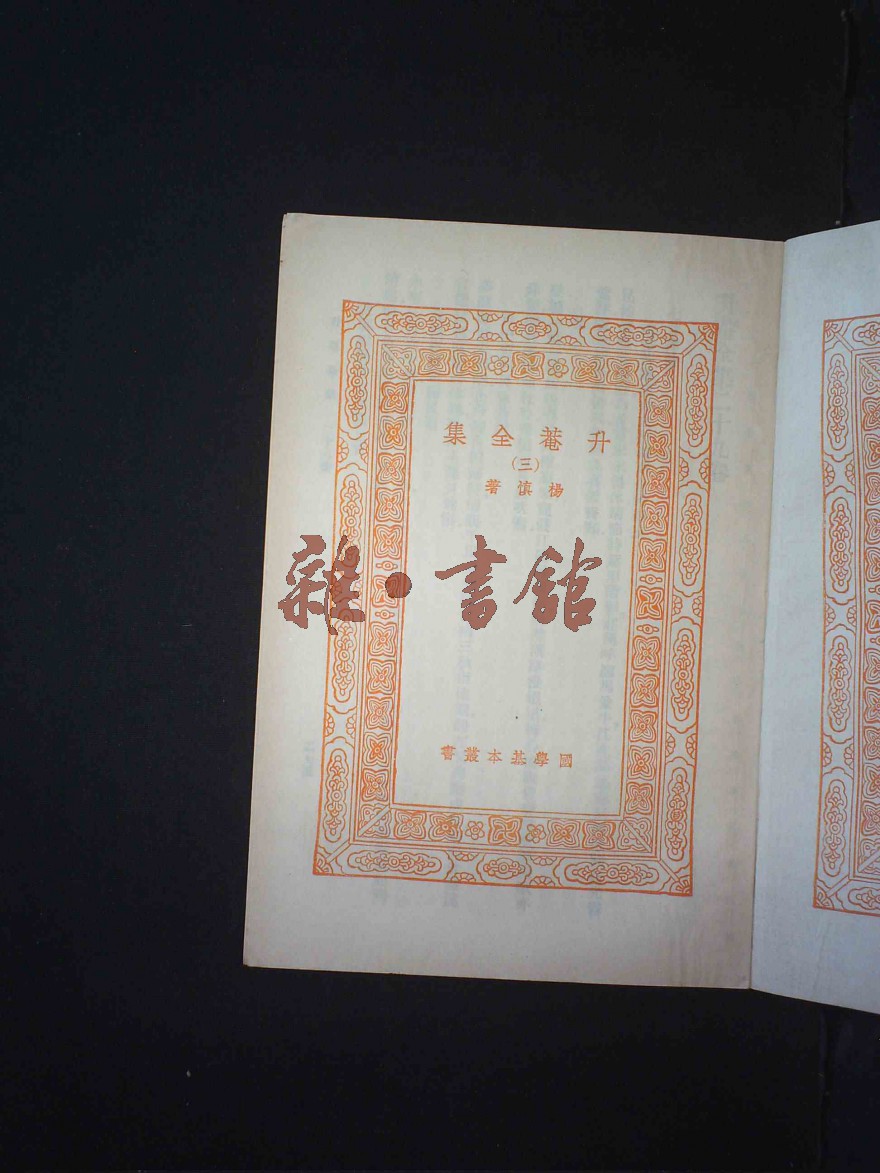 升菴全集
(三)
楊慎著
雜·書館
國學基本叢書